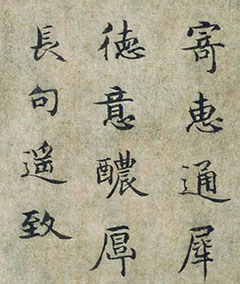 寄惠通犀
德意醲厚
長句遙致